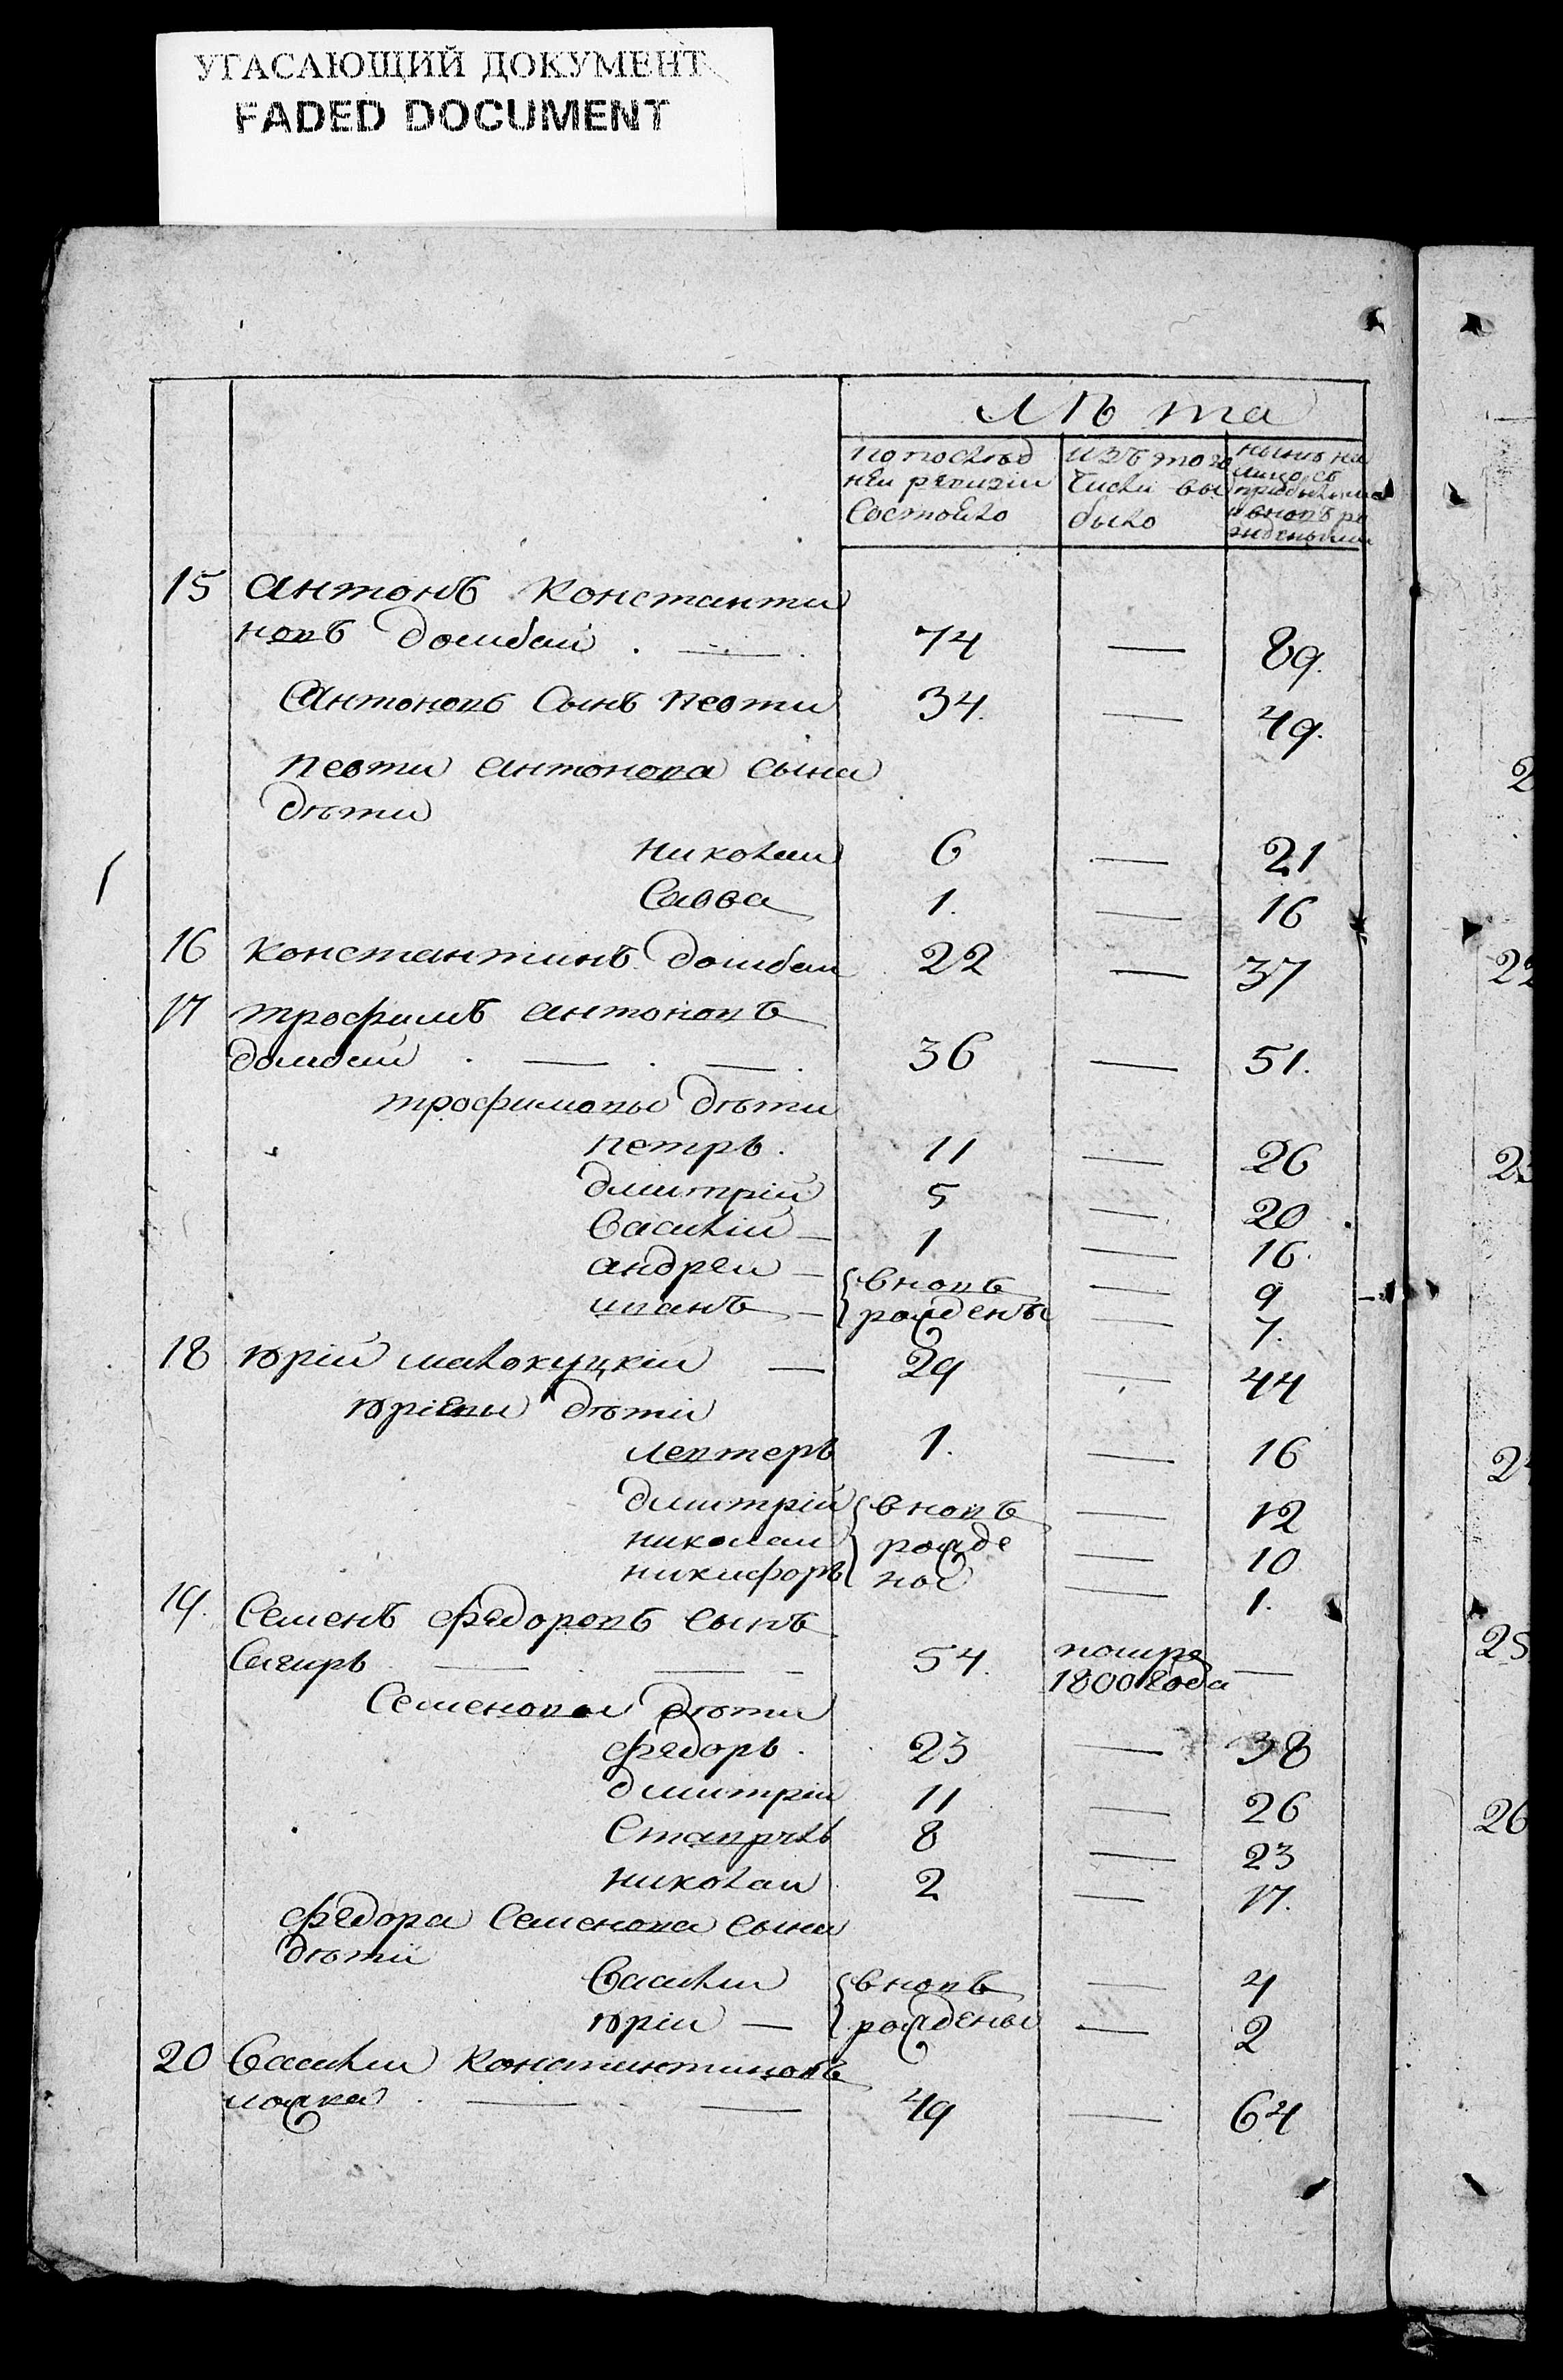 УГАСАЮЩИЙ ДОКУМЕНТ
FADED DOCUMENT
Лѣта
по послѣд изъ того нынѣ на
ней ревизіи числа вы лицо съ
состояло было прибылыми
и вновь ро
жденными
15 Антонъ Константи
новъ Домбай . — . 74 — 89.
Антоновъ сынъ Леоти 34. — 49.
Леоти Антонова сына
дѣти
Николай 6 — 21
Савва 1. — 16
16 Константинъ Домбай 22 — 37
17 Трофимъ Антоновъ
Домбай . — . — . 36 — 51.
Трофимовы дѣти
Петръ . 11 — 26
Дмитрій 5 — 20
Василій — 1 — 16.
Андреи — вновь — 9
Иванъ — рождены — 7.
18 Юрій Малокуцкіи — 29 — 44
Юріевы дѣти
Левтеръ 1. — 16
Дмитрій вновь — 12
Николаи рожде — 10
Никифоръ ны — 1.
19. Семенъ Федоровъ сынъ
Сагиръ — — 54. помре —
1800 года
Семеновы дѣти
Федоръ . 23 — 38
Дмитріи 11 — 26
Ставрилъ 8 — 23
Николаи 2 — 17.
Федора Семенова сына
дѣти
Василіи вновь — 4
Юріи — рождены — 2
20 Василіи Константиновъ
. — — 49 — 64
2
22
23
24
25
26